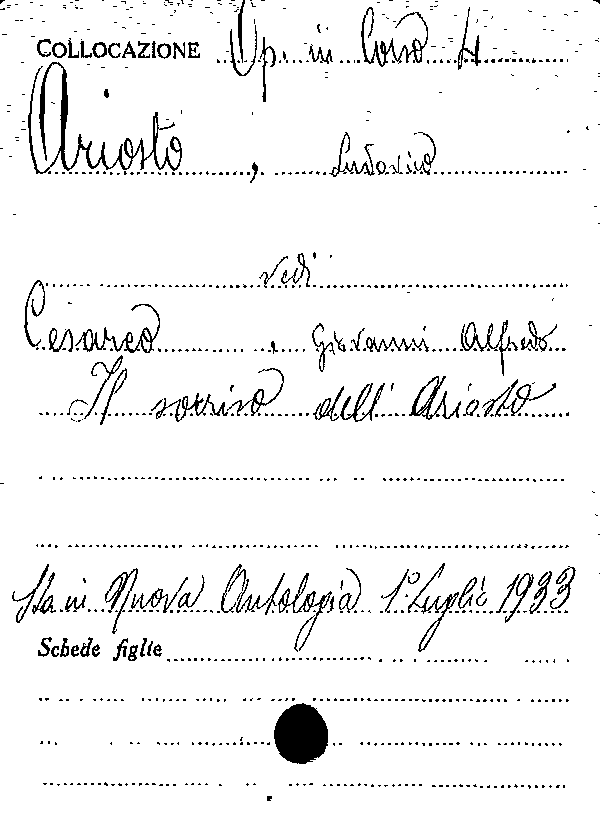 COLLOCAZIONE Op. in Corso 4
Ariosto, Ludovico
vedi
Cesareo, Giovanni Alfredo
Il sorriso dell'Ariosto
Sta in Nuova Antologia 1º Luglio 1933
Schede figlie